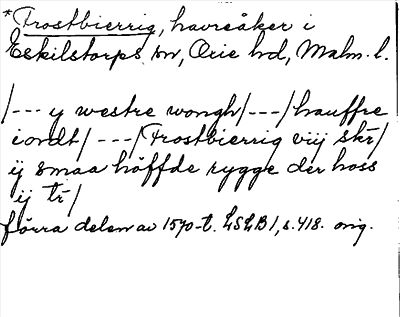 *Frostbierrig, havreåker i
Eskilstorps sn, Oxie hd, Malm. l.
/--- y westre wongh/---/hauffre
iordt/---/Frostbierrig viij skr/
ij smaa höffde rygge der hoss
ij tr/
förra delen av 1570-t. LSLB 1, s. 418. orig.